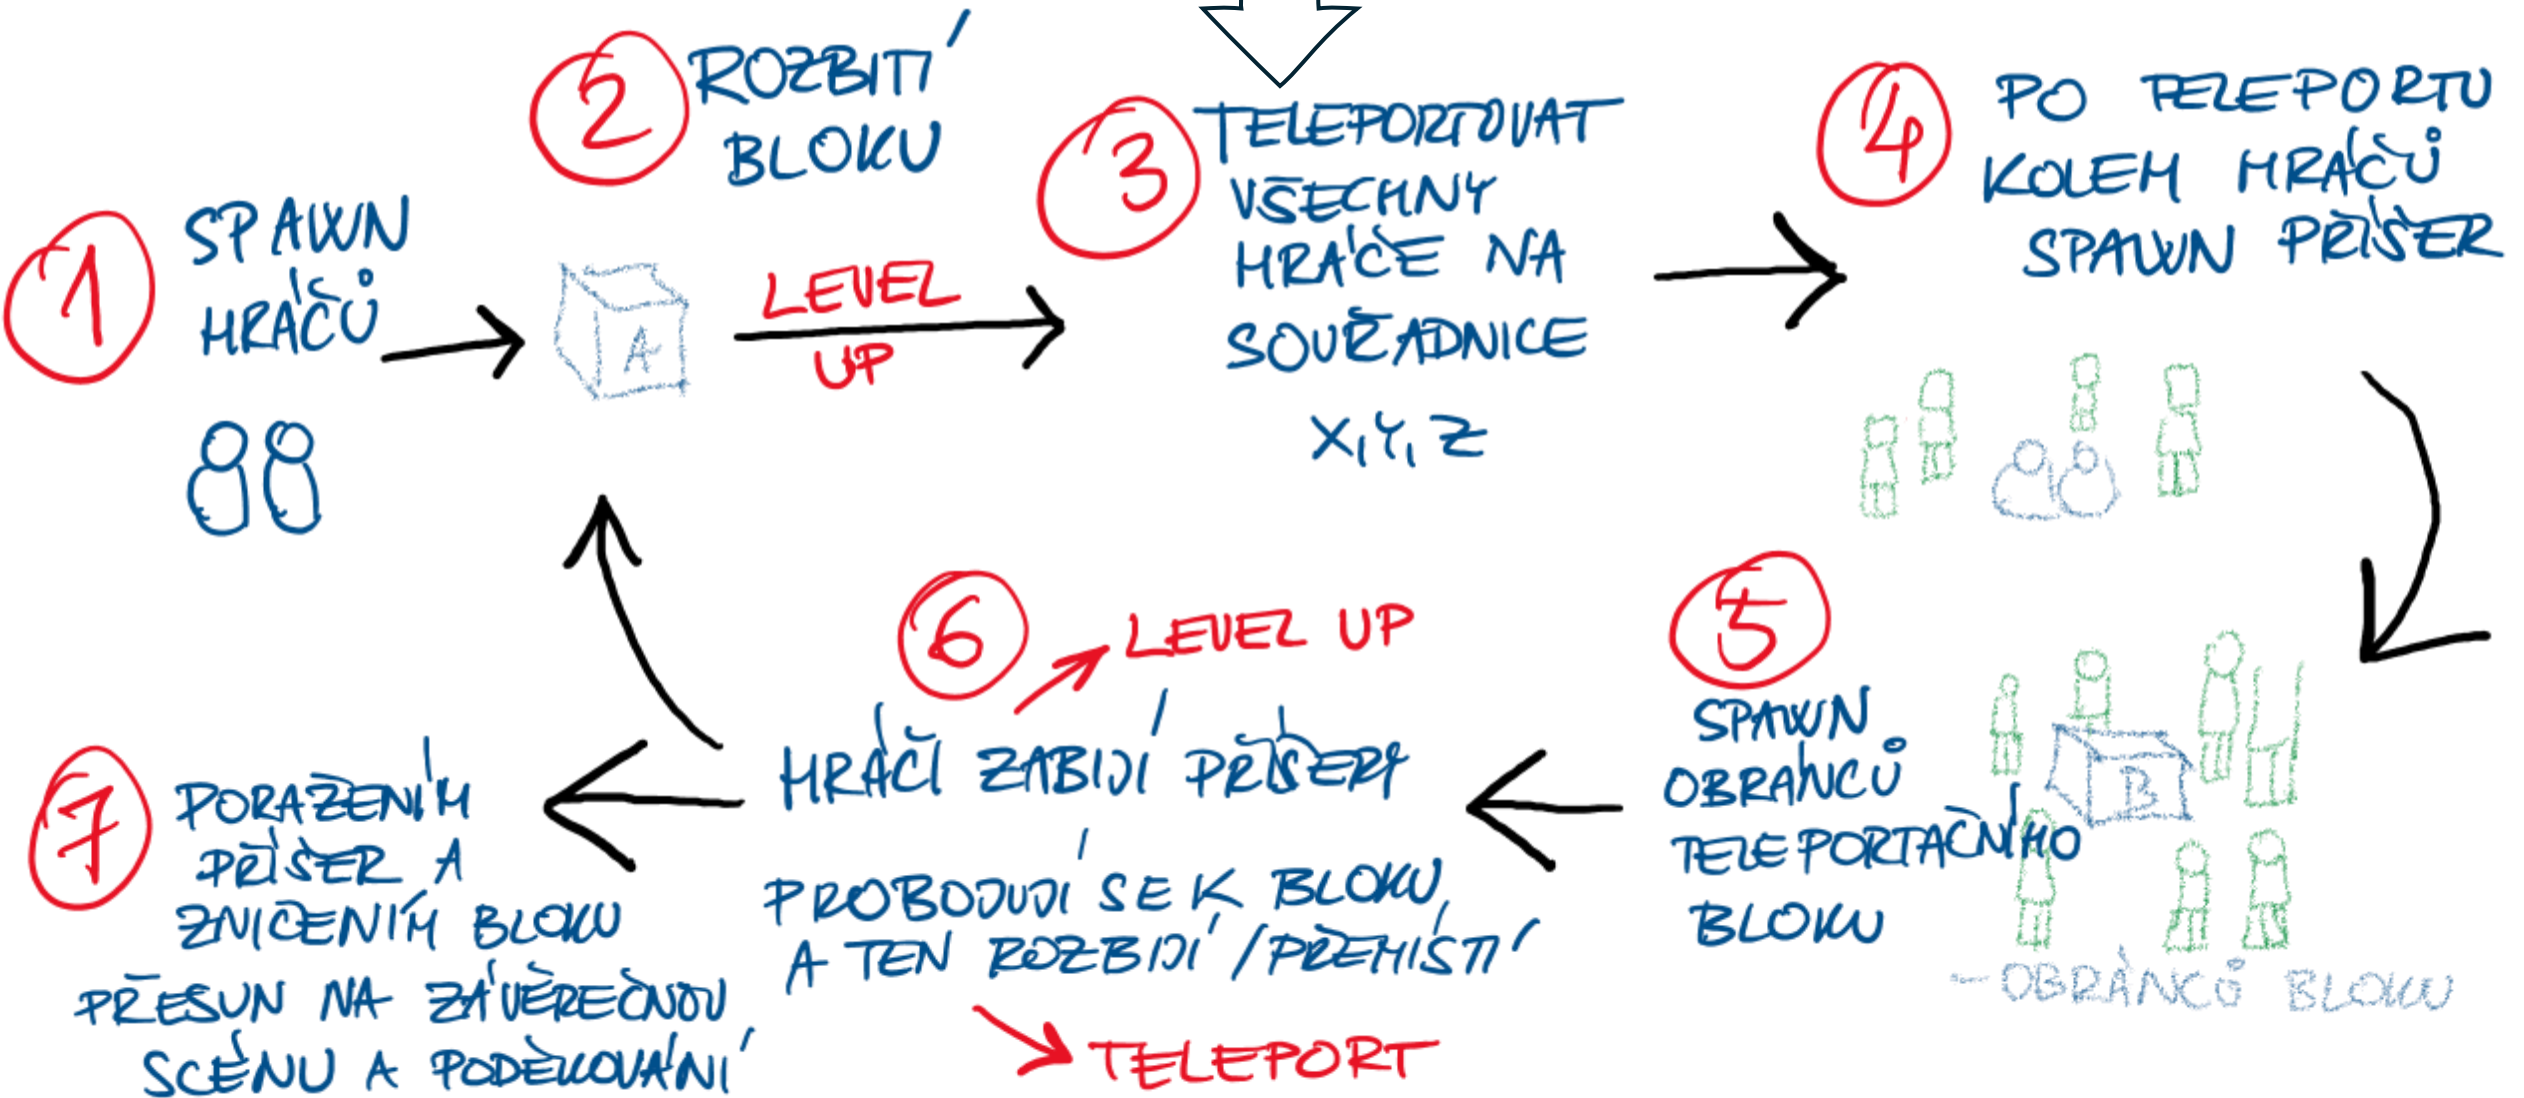 1
SPAWN
HRÁČŮ
2
ROZBITÍ
BLOKU
A
LEVEL
UP
3
TELEPORTOVAT
VŠECHNY
HRÁČE NA
SOUŘADNICE
X, Y, Z
4
PO TELEPORTU
KOLEM HRÁČŮ
SPAWN PŘÍŠER
5
SPAWN
OBRÁNCŮ
TELEPORTAČNÍHO
BLOKU
B
-OBRÁNCŮ BLOKU
6
LEVEL UP
HRÁČI ZABIJÍ PŘÍŠERY
PROBOJUJÍ SE K BLOKU
A TEN ROZBIJÍ / PŘEMÍSTÍ
TELEPORT
7
PORAŽENÍM
PŘÍŠER A
ZNIČENÍM BLOKU
PŘESUN NA ZÁVĚREČNOU
SCÉNU A PODĚKOVÁNÍ